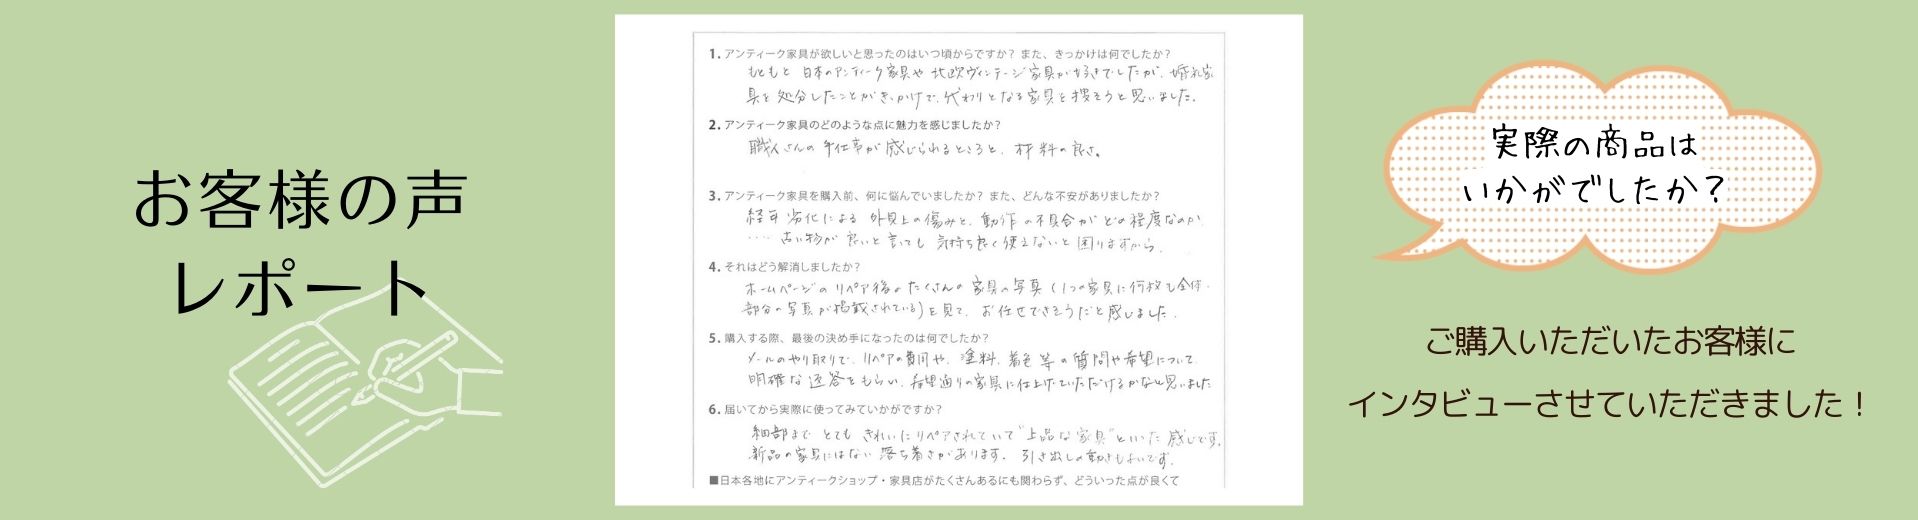 お客様の声
レポート
1. アンティーク家具が欲しいと思ったのはいつ頃からですか？ また、きっかけは何でしたか？
もともと 日本のアンティーク家具や 北欧ヴィンテージ家具が好きでしたが、婚礼家
具を処分したことがきっかけで、代わりとなる家具を捜そうと思いました。
2. アンティーク家具のどのような点に魅力を感じましたか？
職人さんの手仕事が感じられるところと、材料の良さ。
3. アンティーク家具を購入前、何に悩んでいましたか？ また、どんな不安がありましたか？
経年劣化による 外見上の傷みと、動作の不具合がどの程度なのか
････ 古い物が良いと言っても 気持ち良く使えないと困りますから。
4. それはどう解消しましたか？
ホームページのリペア後のたくさんの家具の写真（1つの家具に何枚も全体・
部分の写真が掲載されている）を見て、お任せできそうだと感じました。
5. 購入する際、最後の決め手になったのは何でしたか？
メールのやり取りで、リペアの費用や、塗料、着色等の質問や希望について
明確な返答をもらい、希望通りの家具に仕上げていただけるかなと思いました
6. 届いてから実際に使ってみていかがですか？
細部まで とても きれいにリペアされていて"上品な家具"といった感じです。
新品の家具にはない落ち着きがあります。引き出しの動きもよいです。
■日本各地にアンティークショップ・家具店がたくさんあるにも関わらず、どういった点が良くて
実際の商品は
いかがでしたか？
ご購入いただいたお客様に
インタビューさせていただきました！